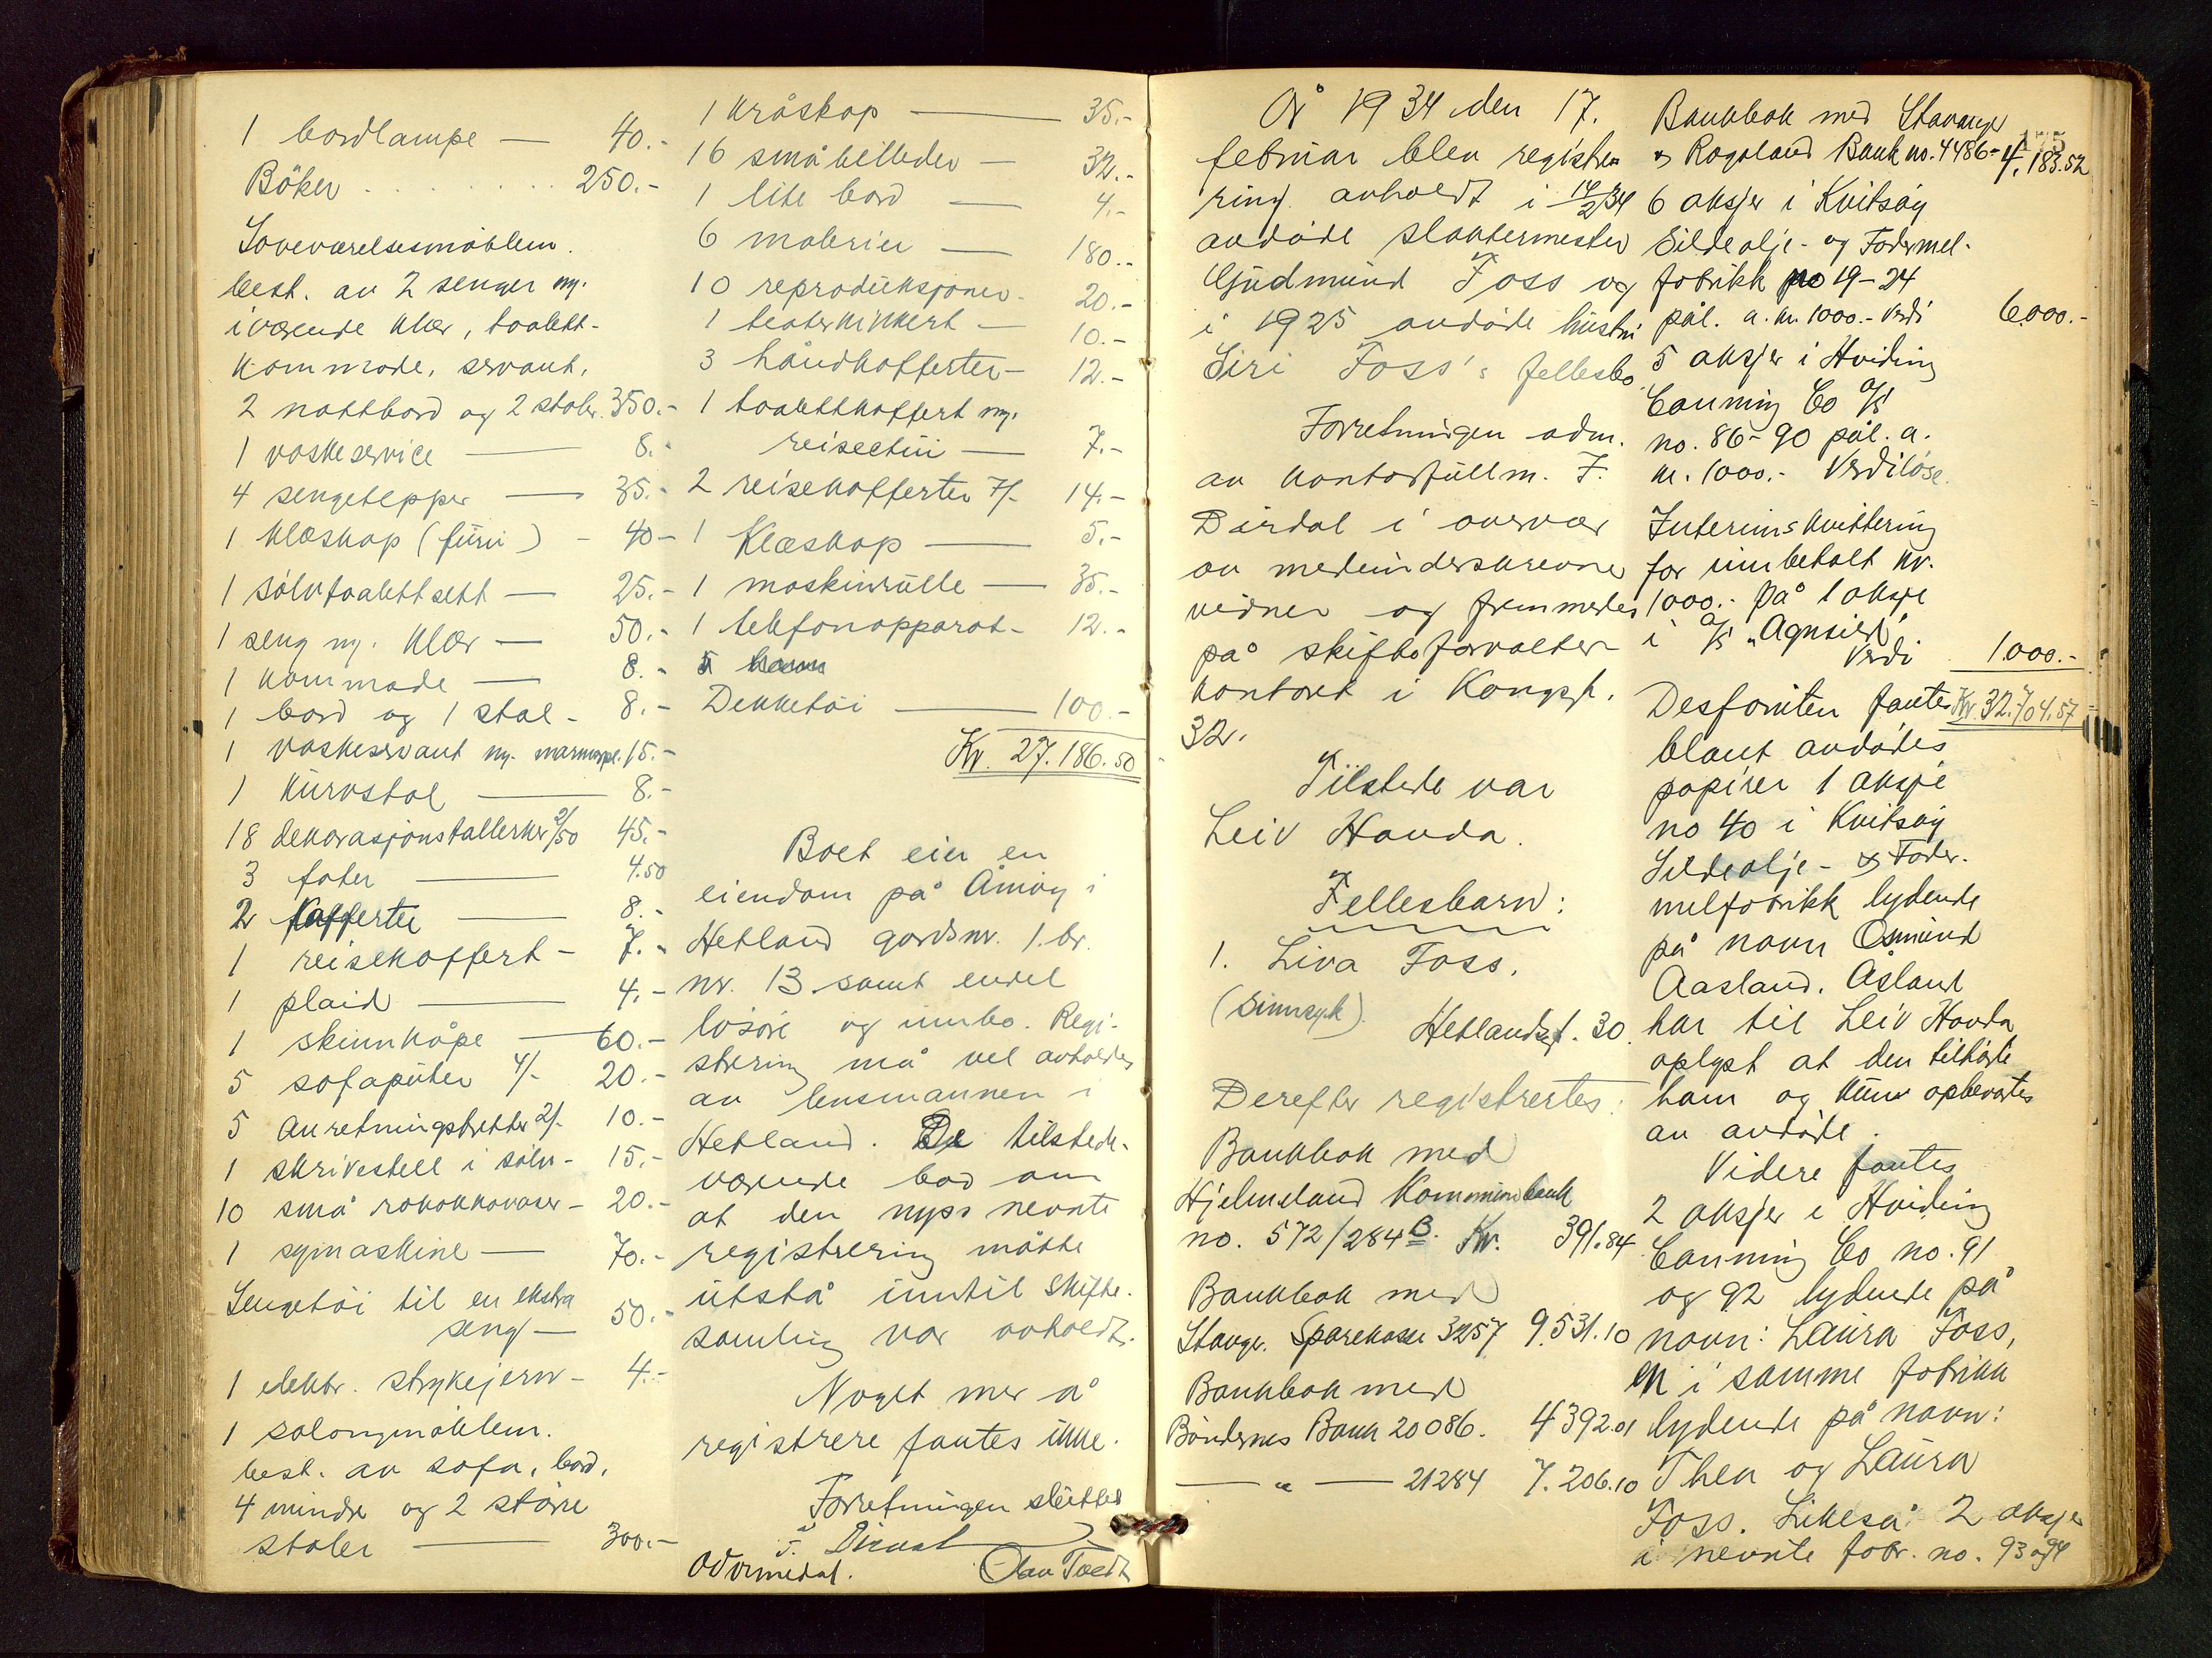 1 bordlampe — 40.-
Böker . . . . . . . . . 250.-
Soveværelsesmöblem.
best. av 2 senger m.
iværende klær, toalett-
kommode, servant,
2 nattbord og 2 stoler 350.-
1 vaskeservice — 8.-
4 sengetepper — 35.-
1 klæskap (furu) - 40-
1 sölvtoalettsett — 25.-
1 seng m. klær — 50.-
1 kommode — 8.-
1 bord og 1 stol - 8.-
1 vaskeservant m. marmorpl. 15.-
1 kurvstol — 8.-
18 dekorasjonstallerker 2/50 45.-
3 fater — 4.50
2 kofferter — 8.-
1 reisekoffert - 7.-
1 plaid — 4.-
1 skinnkåpe — 60.-
5 sofaputer 4/- 20.-
5 Anretningsbretter 2/- 10.-
1 skrivestell i sölv - 15.-
10 små rokokkovaser - 20.-
1 symaskine — 70.-
Sengetöi til en ekstra
seng — 50.-
1 elektr. strykejern - 4.-
1 salongmöblem.
best. av sofa, bord,
4 mindre og 2 större
stoler — 300.-
1 kråskap — 35.-
16 små billeder — 32.-
1 lite bord — 4.-
6 malerier — 180.-
10 reproduksjoner - 20.-
1 teaterkikkert — 10.-
3 håndkofferter - 12.-
1 toalettkoffert m.
reiseetui — 7.-
2 reisekofferter 7/- 14.-
1 Klæskap — 5.-
1 maskinrulle — 35.-
1 telefonapparat - 12.-
Dekketöi — 100.-
Kr. 27.186.50
Boet eier en
eiendom på Åmöy i
Hetland gardsnr. 1. br.
nr. 13 samt endel
lösöre og innbo. Regi-
strering må vel avholdes
av lensmannen i
Hetland. De tilstede-
værende bad om
at den nyss nevnte
registrering måtte
utstå inntil skifte-
samling var avholdt.
Noget mer å
registrere fantes ikke.
Forretningen sluttet
F. Dirdal
Olav Tvedt
År 1934 den 17.
februar blev registre
ring avholdt i 14/2 34
avdöde slaktermester
Gudmund Foss og
i 1925 avdöde hustru
Siri Foss's fellesbo.
Forretningen adm.
av kontorfullm. F.
Dirdal i overvær
av medunderskrevne
vidner og fremmedes
på skifteforvalter-
kontoret i Kongsgt.
32.
Tilstede var
Leiv Havda.
Fellesbarn:
1. Liva Foss,
(sinnsyk). Hetlandsgt. 30.
Derefter registrertes:
Bankbok med
Hjelmeland Kommunebank
no. 572/284 B. Kr. 391.84
Bankbok med
Stavgr. Sparekasse 3257 9.531.10
Bankbok med
Böndernes Bank 20086. 4392.01
— " — 21284 7.206.10
175
Bankbok med Stavanger
& Rogaland Bank no. 4486 - 4.183.52
6 aksjer i Kvitsöy
Sildeolje- og Fodermel-
fabrikk no 19-24
pål. a. kr. 1000.- Verdi 6000.-
5 aksjer i Hviding
Canning Co A/S
no. 86-90 pål. a.
kr. 1000.- Verdilöse.
Interimskvittering
for innbetalt kr.
1000.- på 1 aksje
i A/S "Agnsild"
Verdi 1.000.-
Kr. 32.704.57
Desforuten fantes
blant avdödes
papirer 1 aksje
no 40 i Kvitsöy
Sildeolje- & Foder-
melfabrikk lydende
på navn Osmund
Aasland. Åsland
har til Leiv Havda
oplyst at den tilhörte
ham og kun opbevartes
av avdöde.
Videre fantes
2 aksjer i Hviding
Canning Co no. 91
og 92 lydende på
navn: Laura Foss,
en i samme fabrikk
lydende på navn:
Thea og Laura
Foss. Likeså 2 aksjer
i nevnte fabr. no. 93 og 94